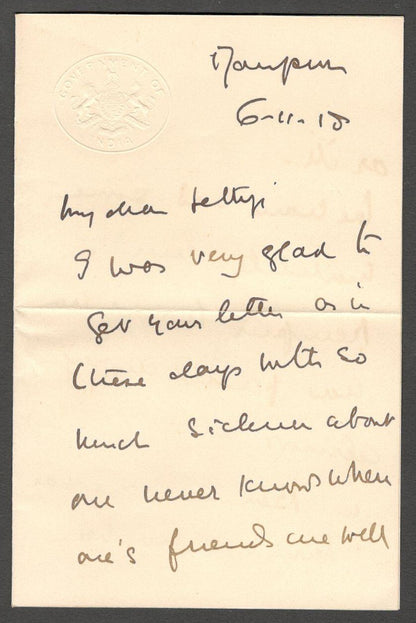 GOVERNMENT OF
INDIA
6-11-18
My dear Settyji
I was very glad to
get your letter as in
these days with so
much sickness about
one never knows when
one's friends are well